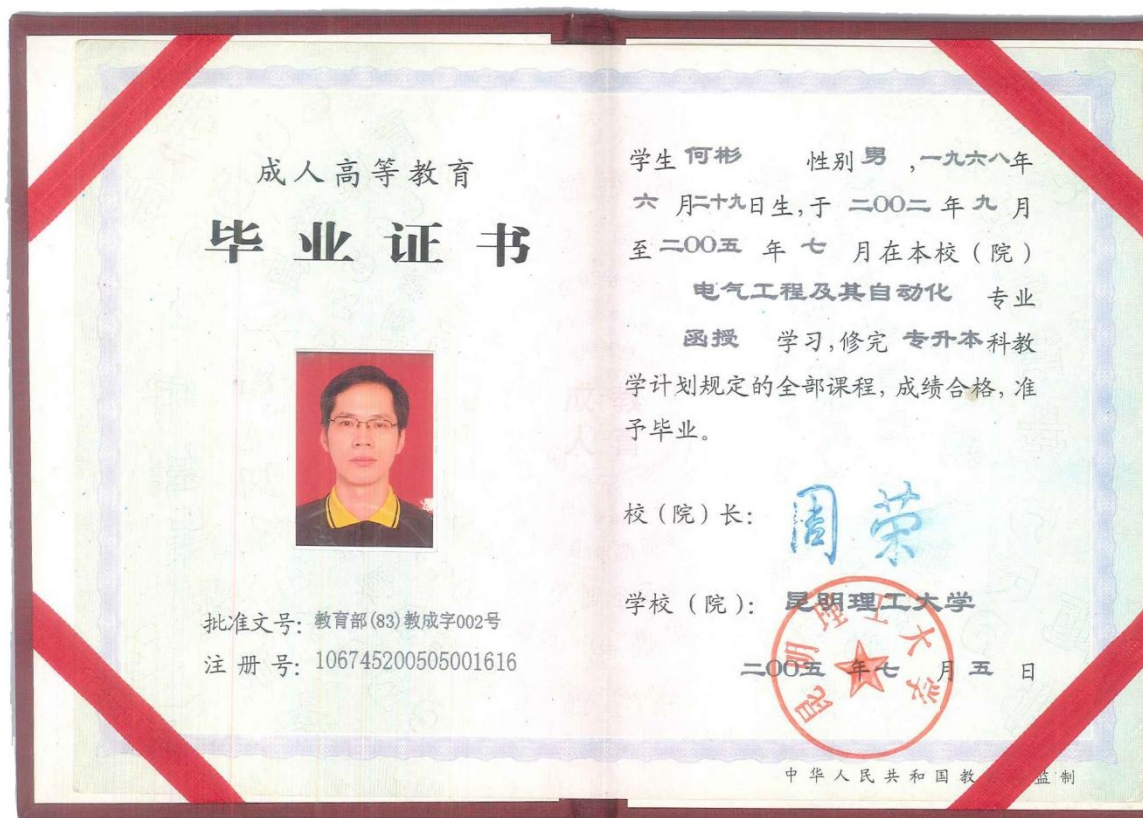 成人高等教育
毕业证书
批准文号: 教育部(83)教成字002号
注册号: 106745200505001616
学生 何彬 性别 男 ,一九六八年
六 月二十九日生,于 二〇〇二 年 九 月
至 二〇〇五 年 七 月在本校(院)
电气工程及其自动化 专业
函授 学习,修完 专升本科教
学计划规定的全部课程,成绩合格,准
予毕业。
校(院)长: 周荣
学校(院): 昆明理工大学
昆明理工大学
二〇〇五 年 七 月 五 日
中华人民共和国教 监制